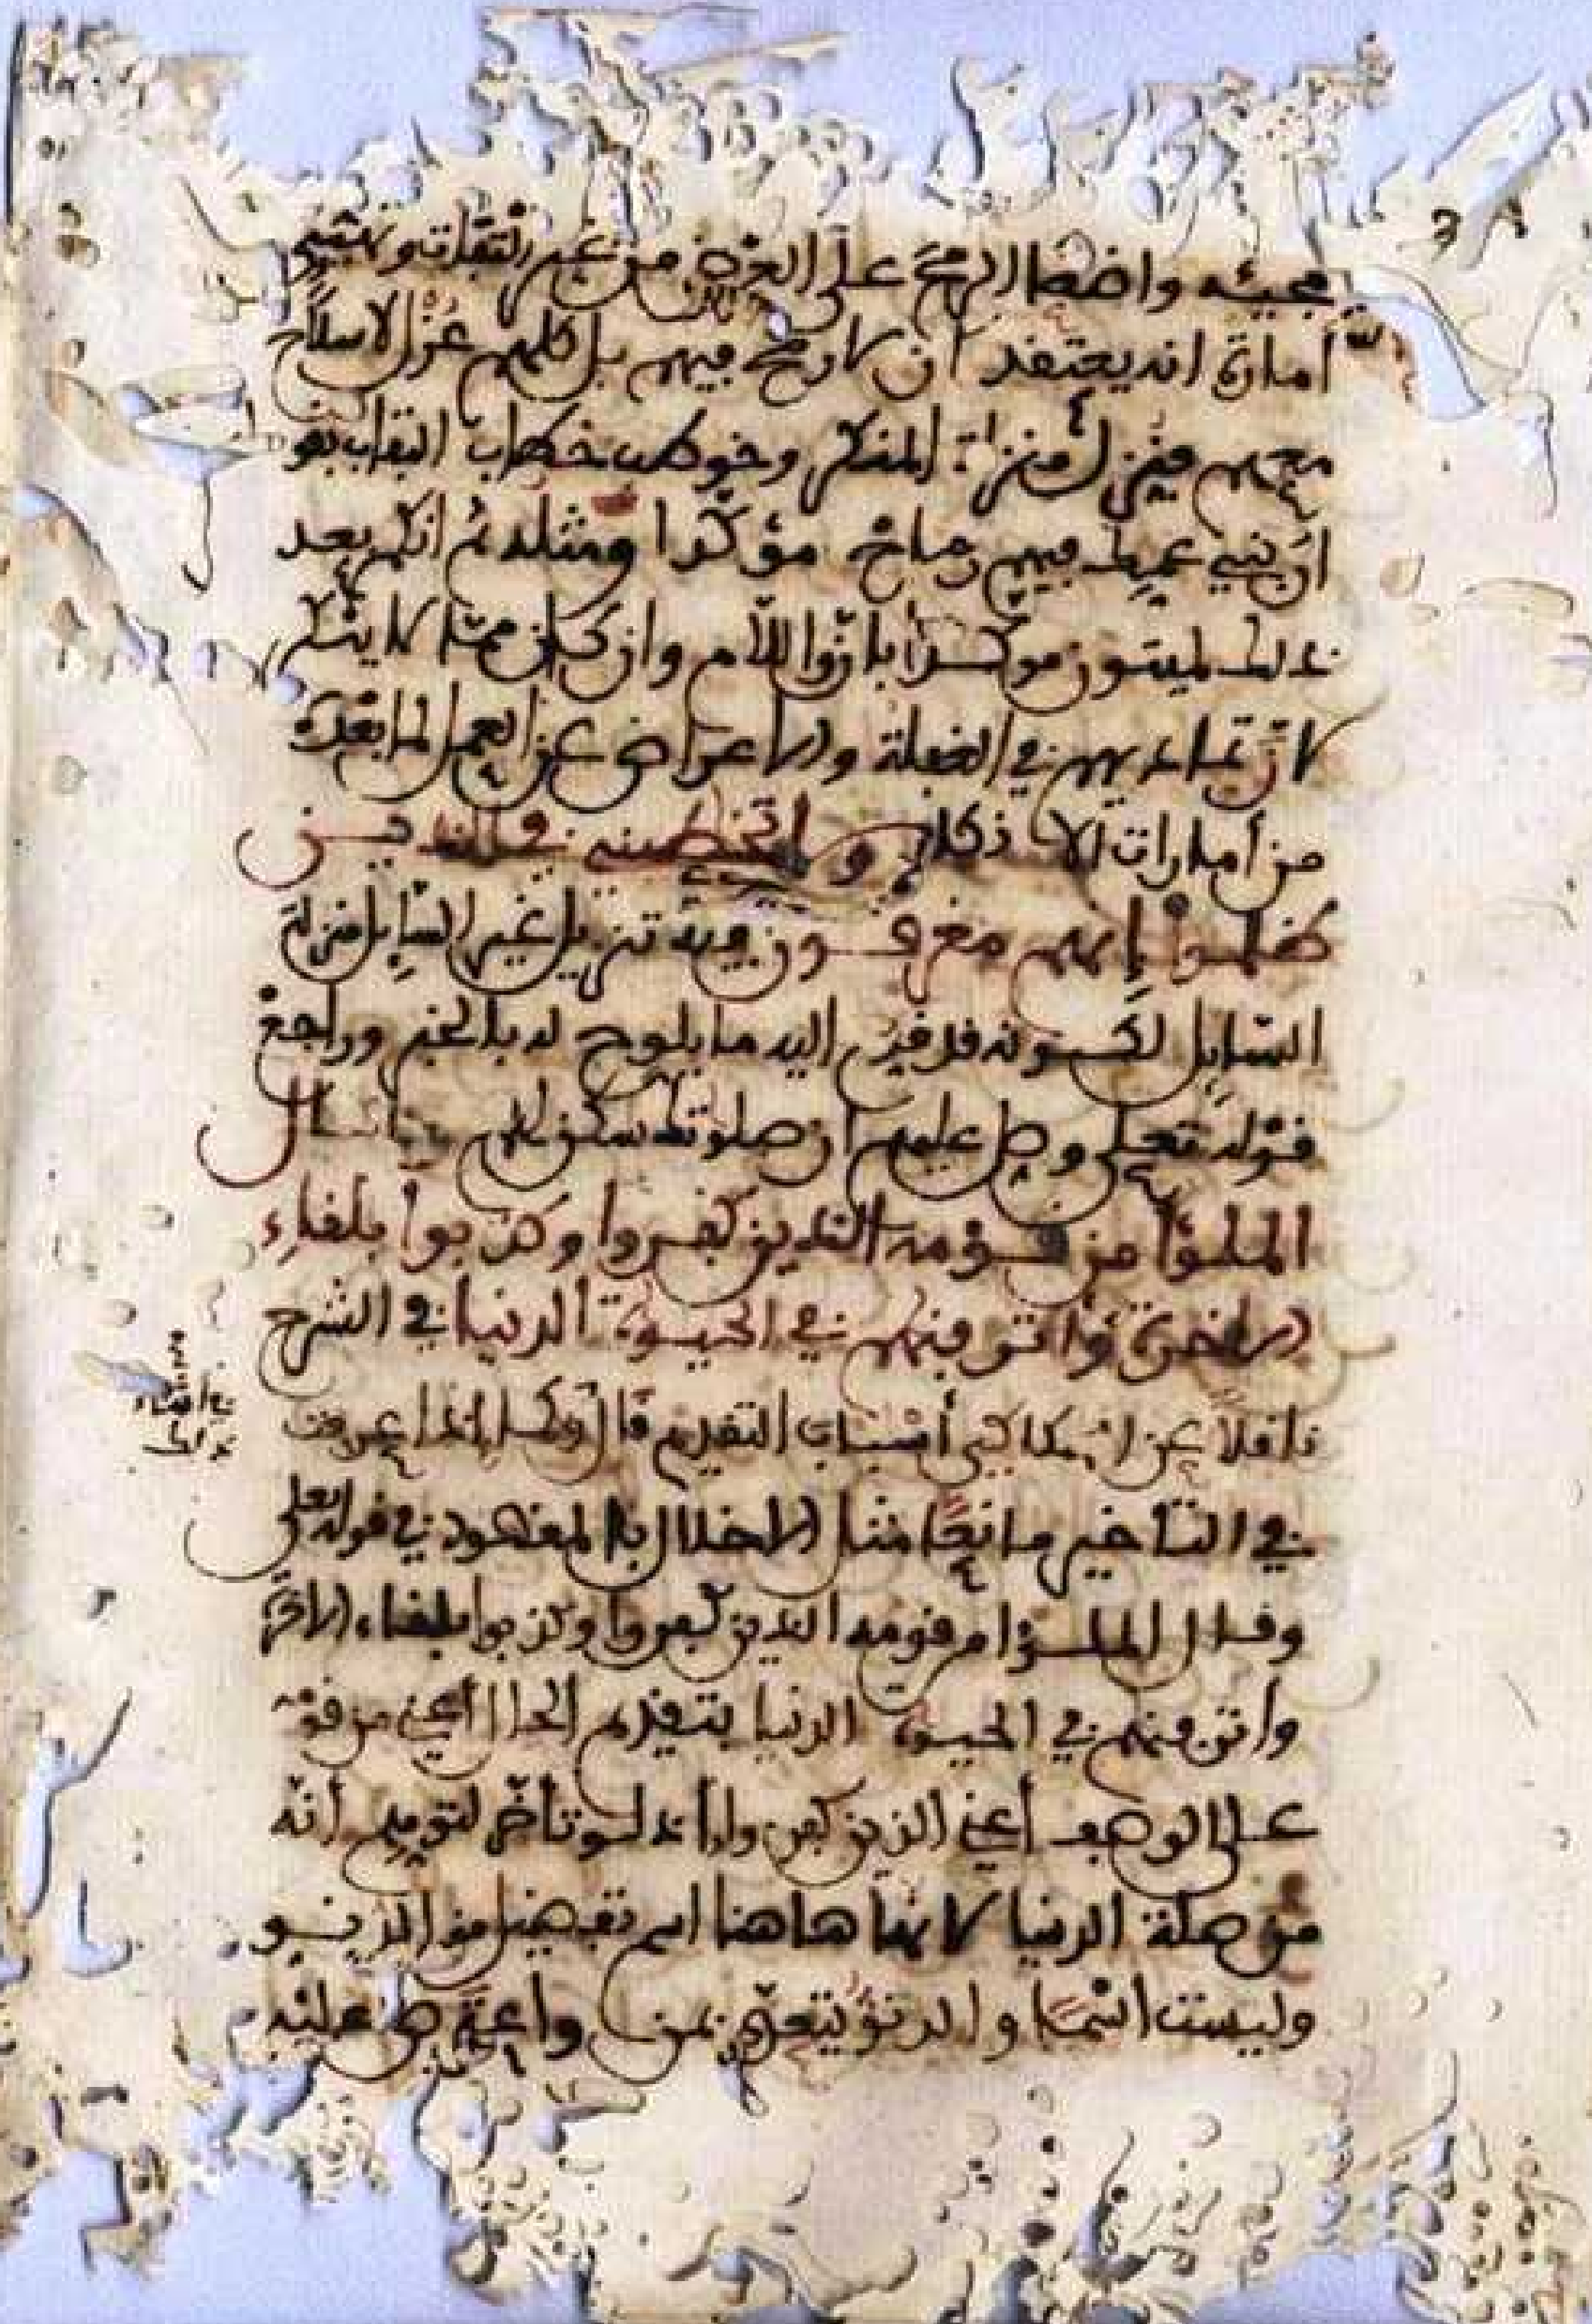 مجيئه واضعا الرمح على العرض من غير التفات وتهيئ
أمارة انه يعتقد أن لا رمح فيهم بل كلهم عزل لا سلاح
معهم فنزل منزلة المنكر وخوطب خطاب التفات بقو
ان بني عمك فيهم رماح مؤكدا ومثله ثم انكم بعد
ذلك لميتون مؤكدا بان واللام وان كان مما لا ينكر
لان تماديهم في الغفلة والاعراض عن العمل لما بعده
من أمارات الانكار ولا تخاطبني في الذين
ظلموا إنهم مغرقون فيه تنزيل غير السايل منزلة
السايل لكونه قد قدم اليه ما يلوح له بالخبر وراجع
قوله تعلى وصل عليهم ان صلوتك سكن لهم وقال
الملؤا من قومه الذين كفروا وكذبوا بلقاء
الاخرة وأترفنهم في الحيوة الدنيا في الشرح
ناقلا عن السكاكي أسباب التقديم قال وكما اذا عرفت
في التأخير مانعا مثل الاخلال بالمقصود في قوله تعلى
وقال الملؤا من قومه الذين كفروا وكذبوا بلقاء الاخرة
وأترفنهم في الحيوة الدنيا بتقديم الحال أعني من قومه
على الوصف أعني الذين كفروا إذ لو تأخر لتوهم أنه
من صلة الدنيا لانها هاهنا اسم تفضيل من الدنو
وليست اسما والدنو يتعدى بمن